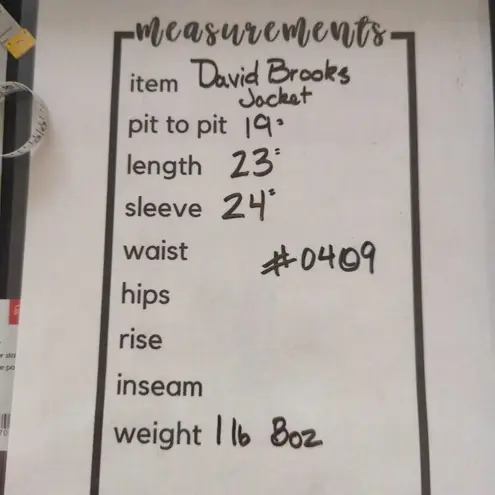 measurements
item David Brooks
Jacket
pit to pit 19"
length 23"
sleeve 24"
waist
#0409
hips
rise
inseam
weight 1 lb 8oz